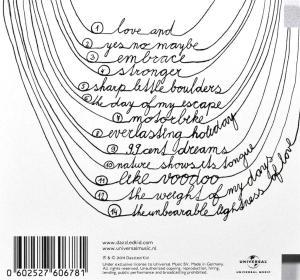 1 love and
2 yes no maybe
3 embrace
4 stronger
5 sharp little boulders
6 the day of my escape
7 motorbike
8 everlasting holiday
9 99 cent dreams
10 nature shows its tongue
11 like voodoo
12 the weight of my days
14 the unbearable lightness of love
www.dazzledkid.com
www.universalmusic.nl
℗ & © 2011 Dazzled Kid
Under exclusive license to Universal Music BV. Made in Germany.
All rights reserved. Unauthorized copying, reproduction, hiring,
lending, public performance and broadcasting prohibited.
0 602527 606781
UNIVERSAL
UNIVERSAL MUSIC